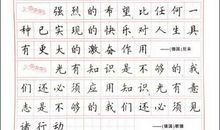 强烈的希望比任何一
种已实现的快乐对人生具
有更大的激奋作用
——(德国)尼采
光有知识是不够的我
们还必须应用知识光有意
志是不够的我们还必须见
诸行动
——(德国)歌德